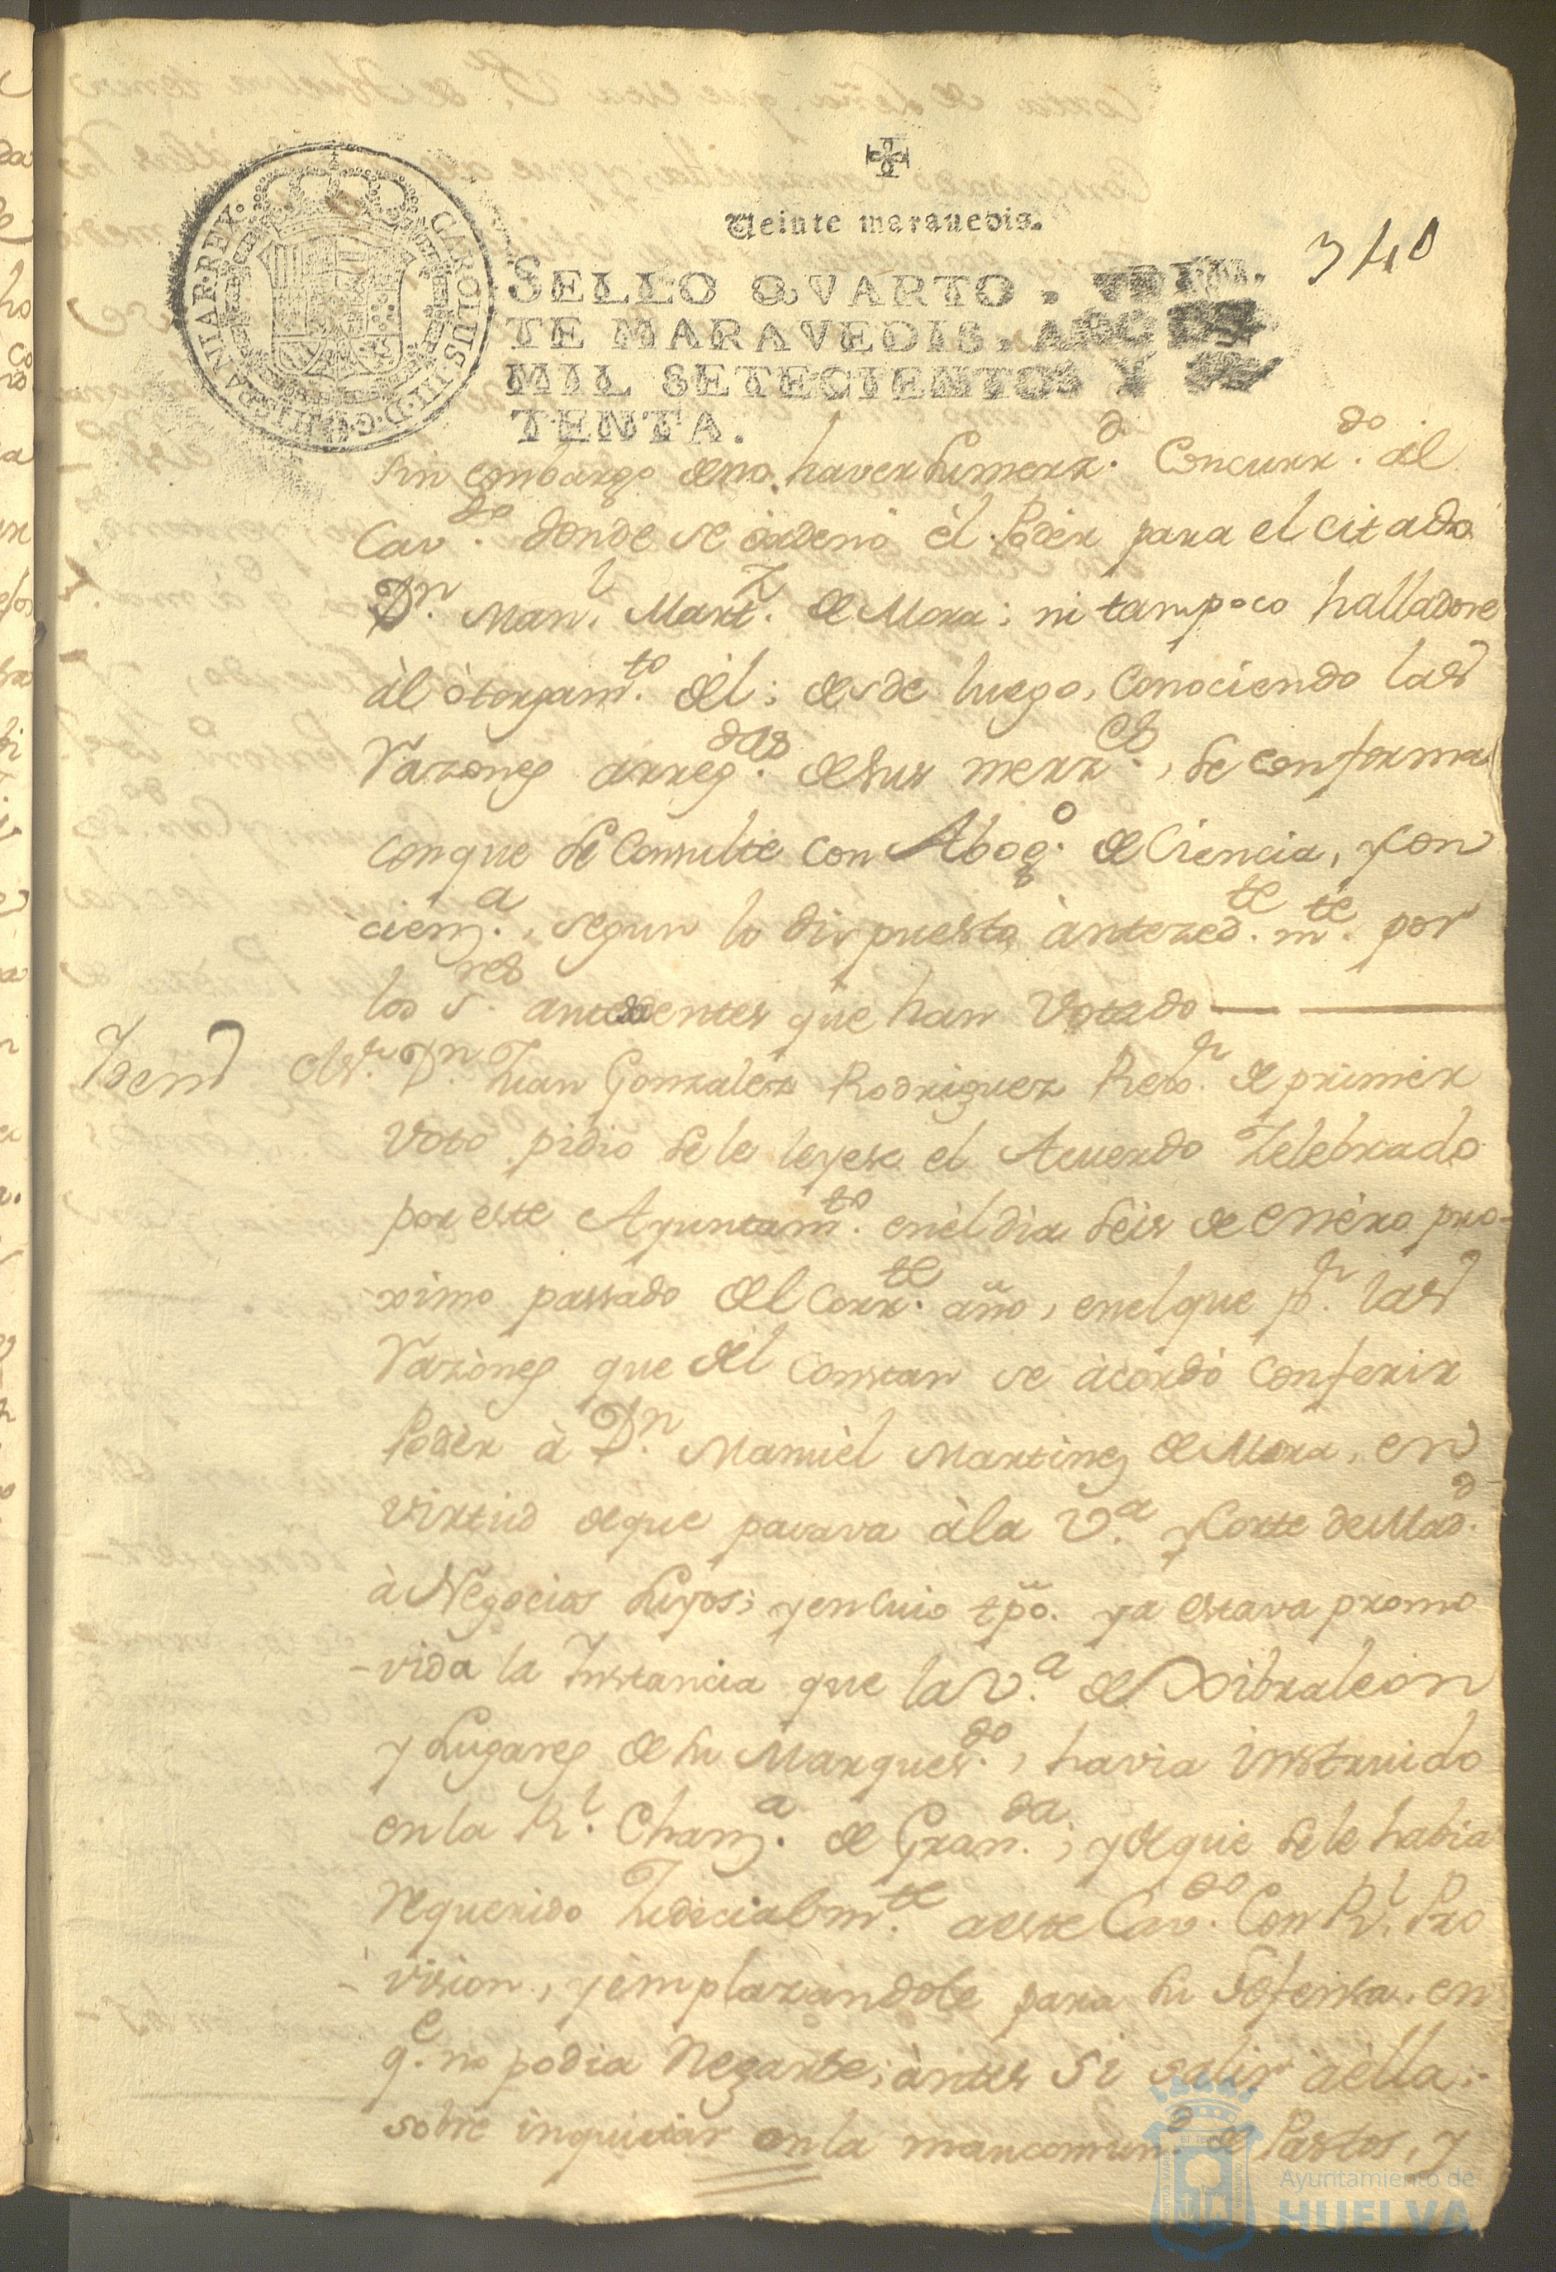 Veinte maravedis.
340
CAROLUS III D G HISPANIAR REX
SELLO QVARTO. VEIN-
TE MARAVEDIS. AÑO DE
MIL SETECIENTOS Y SE-
TENTA.
Sin embargo de no haver su merz.d Concurr.do al
Cav.do donde se òrdenò èl Podèr para el citado
Dn. Man.l Mart.z de Mora; ni tampoco halladose
àl òtorgam.to del; desde luego, Conociendo las
Razones arreg.das de sus merz.es, se conforma
con que se Consulte con Abog.o de Ciencia, y con
cienz.a, segun lo dispuesto àntezed.te m.te por
los S.res antecedentes que han Votado
Idem
El Sr. Dn. Juan Gonzalez Rodriguez Rexo.r de primèr
Voto pidio se le leyese el Acuerdo Zelebrado
por este Ayuntam.to en èl dia seis de enèro pro-
ximo passado del Corr.te año, en el que p.r las
Razònes que dèl Constan se àcordò Conferir
Podèr à Dn. Manuèl Martinez de Mora, en
virtud de que pasava à la V.a y Corte de Mad.d
à Negocios suyos; y en Cuio tpo. ya estava promo
-vida la Instancia que la V.a de Xibraleòn
y Lugares de su Marques.do, havia instruido
en la R.l Chanz.a de Gran.da, y de que se le habia
Requerido Judicialm.te a este Cav.do Con R.l Pro
-vision, y èmplazandole para su defensa, en
q.e no podia Negarse; àntes si salir àèlla;
sobre inquietar en la mancomun.d de Pastos, y
Ayuntamiento de
HUELVA